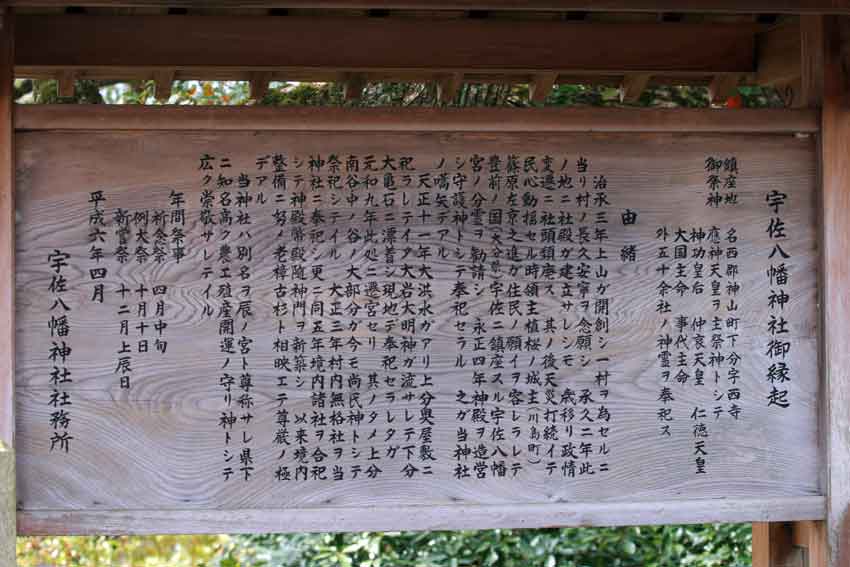 宇佐八幡神社御縁起
鎮産地　名西郡神山町下分字西寺
御祭神　應神天皇ヲ主祭神トシテ
神功皇后　仲哀天皇　仁徳天皇
大国主命　事代主命
外五十余社ノ神霊ヲ奉祀ス
由緒
治承三年上山ガ開創シ一村ヲ為セルニ
当リ村ノ長久安寧ヲ念願シ　承久二年此
ノ地ニ社殿ガ建立サレシモ　歳移リ政情
変遷ニ社頭頽廃ス　其ノ後天災打続イテ
民心動揺セル時領主植桜ノ城主(川島町)
篠原左京之進ガ住民ノ願イヲ容レラレテ
豊前ノ国(大分県)宇佐ニ鎮座スル宇佐八幡
宮ノ分霊ヲ勧請シ　永正四年神殿ヲ造営
シ守護神トシテ奉祀セラル　之ガ当神社
ノ嚆矢デアル
天正十一年大洪水ガアリ上分奥屋敷ニ
祀ラレテイタ大岩大明神ガ流サレテ下分
大亀石ニ漂着シ現地デ奉祀セラレタガ
元和九年此処ニ遷宮セリ　其ノタメ上分
南谷中ノ谷ノ大部分ガ今モ尚氏神トシテ
祭祀シテイル　大正三年村内無格社ヲ当
神社ニ奉祀シ更ニ同五年境内諸社ヲ合祀
シテ神殿幣殿随神門ヲ新築シ　以来境内
整備ニ努メ老樟古杉ト相映エテ尊厳ノ極
デアル
当神社ハ別名ヲ辰ノ宮ト尊称サレ県下
ニ知名高ク農工殖産開運ノ守リ神トシテ
広ク崇敬サレテイル
年間祭事
祈念祭　四月中旬
例大祭　十月十日
新嘗祭　十二月上辰日
平成六年四月
宇佐八幡神社社務所